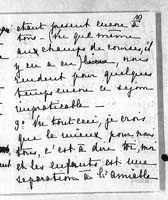 10
étant présent encore à
tous. Vu qu'même
aux champs de courses, il
y en a eu) , nous
rendent pour quelques
temps encore ce séjour
impraticable. –
3° Vu tout ceci, je crois
que le mieux pour nous
tous, c'est à dire toi, moi
et les enfants est une
séparation à l'amiable